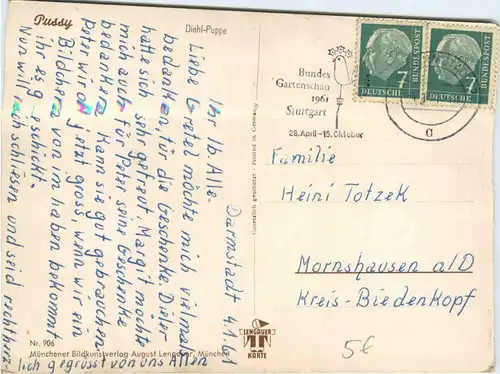 Pussy
Diehl-Puppe
Darmstadt 4.1.61
Ihr lb. Alle.
Liebe Gretel möchte mich vielmal
bedanken, für die Geschenke. Dieter
hatte sich sehr gefreut. Margit möchte
mich auch für Peter seine Geschenke
bedanken. Kann sie gut gebrauchen
Peter wird jetzt gross, wenn wir ein
Bildchen von im haben bekommt
ihr es geschickt.
Nun will ich schliesen und seid recht herz-
lich gegrüsst von uns Allen
Bundes
Gartenschau
1961
Stuttgart
28.April-15.Oktober
7
DEUTSCHE
BUNDESPOST
7
DEUTSCHE
BUNDESPOST
a
Familie
Heini Totzek
Mornshausen a/D
Kreis-Biedenkopf
Gesetzlich geschützt - Printed in Germany
Nr. 906
Münchener Bildkunstverlag August Lengauer, München
LENGAUER
KARTE